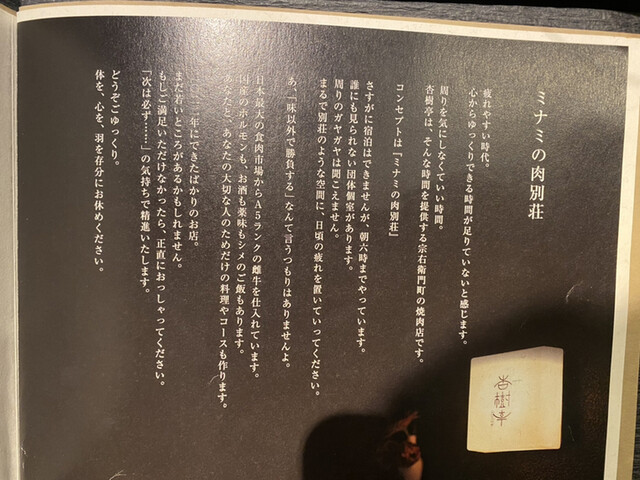 ミナミの肉別荘
疲れやすい時代。
心からゆっくりできる時間が足りていないと感じます。
周りを気にしなくていい時間。
杏樹亭は、そんな時間を提供する宗右衛門町の焼肉店です。
コンセプトは『ミナミの肉別荘』
さすがに宿泊はできませんが、朝六時までやっています。
誰にも見られない団体個室があります。
周りのガヤガヤは聞こえません。
まるで別荘のような空間に、日頃の疲れを置いていってください。
あ、「味以外で勝負する」なんて言うつもりはありませんよ。
日本最大の食肉市場からA5ランクの雌牛を仕入れています。
国産のホルモンも、お酒も薬味もシメのご飯もあります。
あなたと、あなたの大切な人のためだけの料理やコースも作ります。
二年にできたばかりのお店。
まだ若いところがあるかもしれません。
もしご満足いただけなかったら、正直におっしゃってください。
「次は必ず……」の気持ちで精進いたします。
どうぞごゆっくり。
体を、心を、羽を存分にお休めください。
杏樹亭